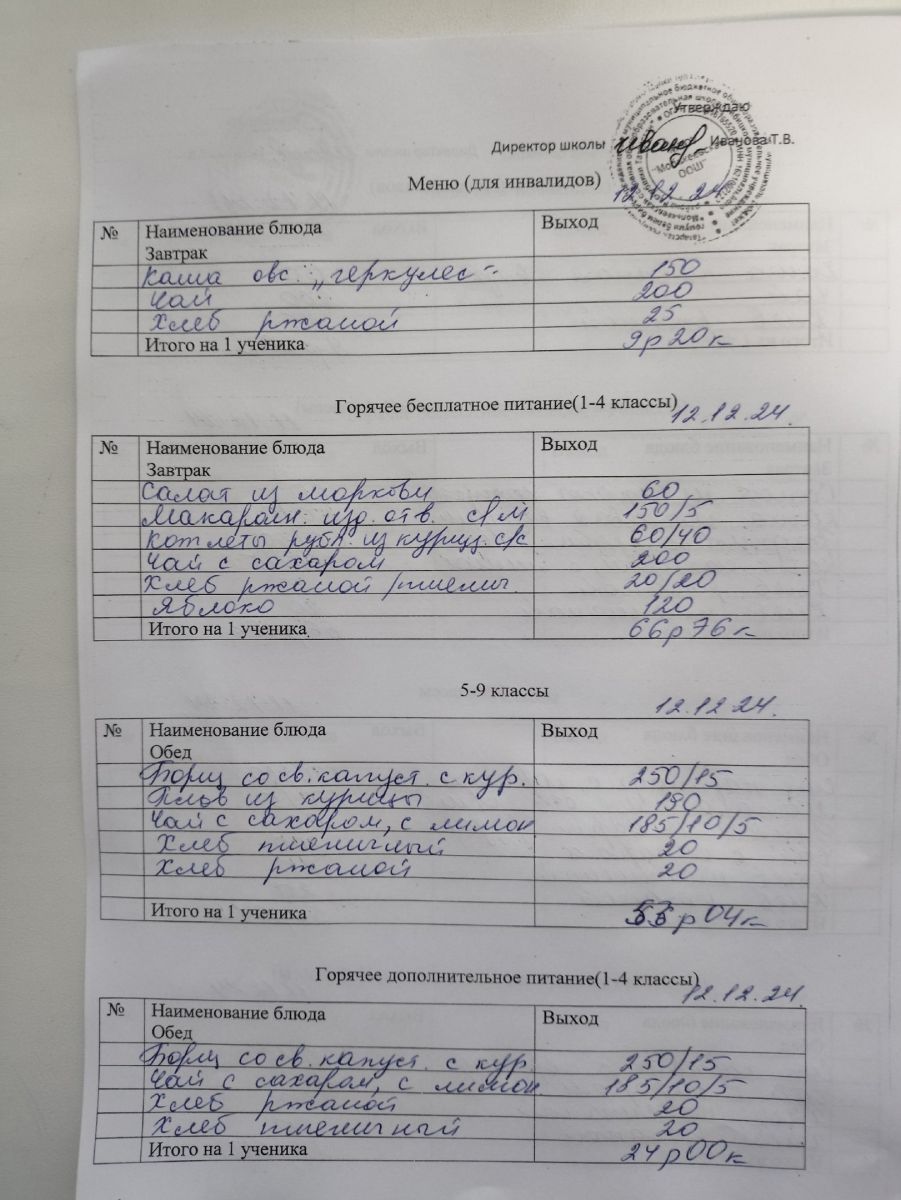 Утверждаю
Директор школы Иванова Т.В.
Меню (для инвалидов) 12.12.24
№ Наименование блюда Выход
Завтрак
Каша овс. "геркулес" 150
Чай 200
Хлеб ржаной 25
Итого на 1 ученика 9р20к
Горячее бесплатное питание(1-4 классы) 12.12.24.
№ Наименование блюда Выход
Завтрак
Салат из моркови 60
Макарон. изд. отв. с/м 150/5
Котлеты рубл. из куриц. с/с 60/40
Чай с сахаром 200
Хлеб ржаной /пшенич 20/20
Яблоко 120
Итого на 1 ученика 66р76к
5-9 классы 12.12.24.
№ Наименование блюда Выход
Обед
Борщ со св. капуст. с кур. 250/15
Плов из курицы 190
Чай с сахаром, с лимон 185/10/5
Хлеб пшеничный 20
Хлеб ржаной 20
Итого на 1 ученика р04к
Горячее дополнительное питание(1-4 классы) 12.12.24.
№ Наименование блюда Выход
Обед
Борщ со св. капуст. с кур 250/15
Чай с сахаром, с лимон. 185/10/5
Хлеб ржаной 20
Хлеб пшеничный 20
Итого на 1 ученика 24р00к